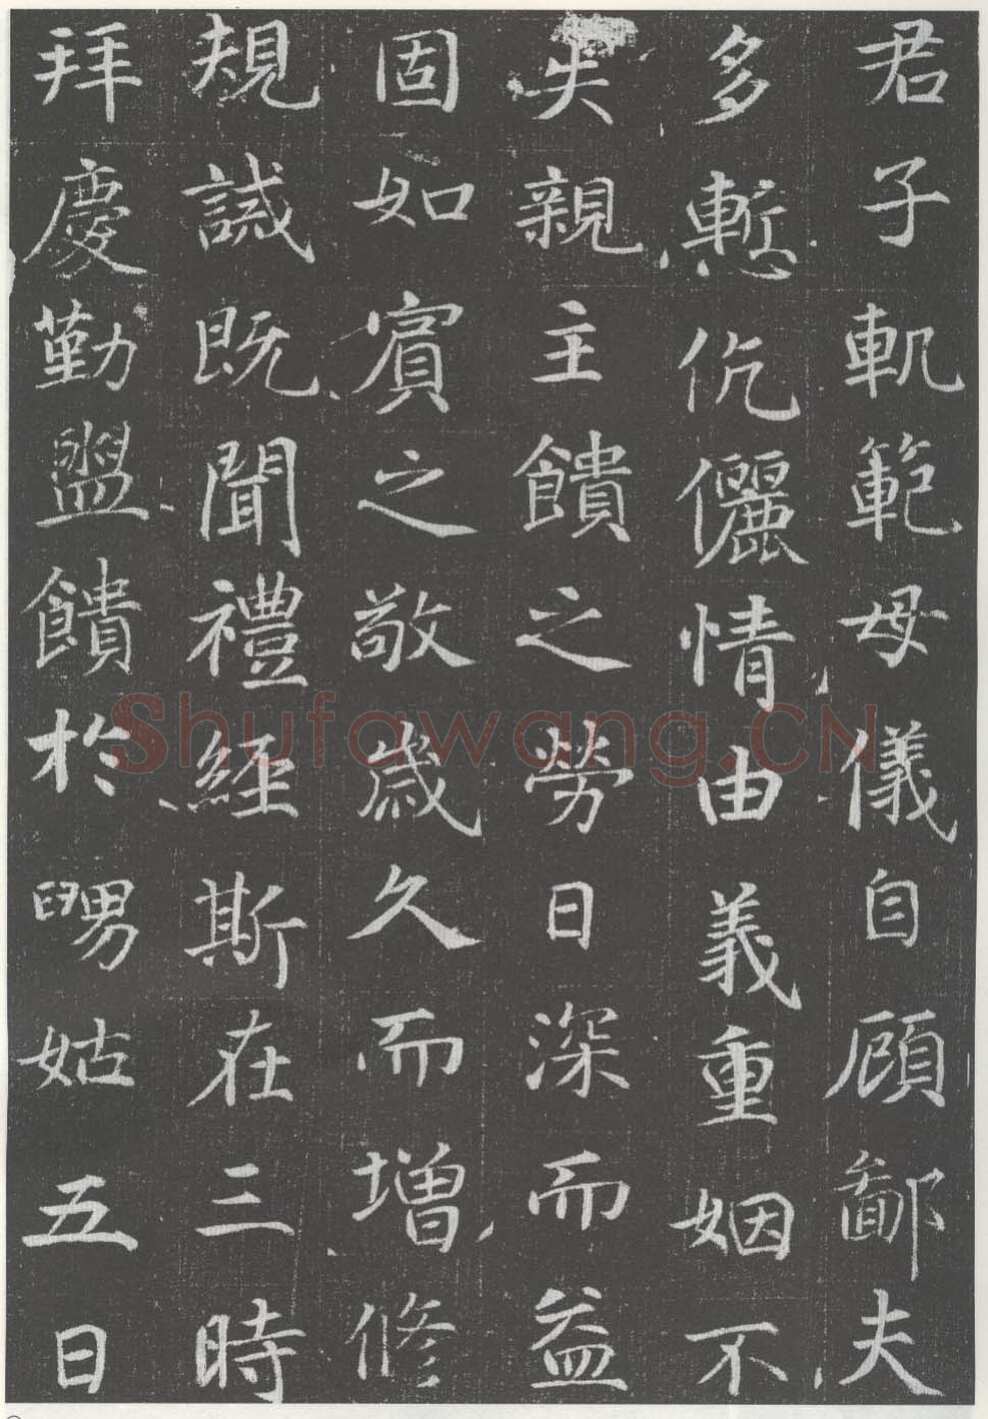 君子軓範母儀自顧鄙夫
多慙伉儷情由義重姻不
失親主饋之勞日深而益
固如賓之敬歲久而增修
規誡既聞禮經斯在三時
拜慶勤盥饋於舅姑五日
Shufawang.CN